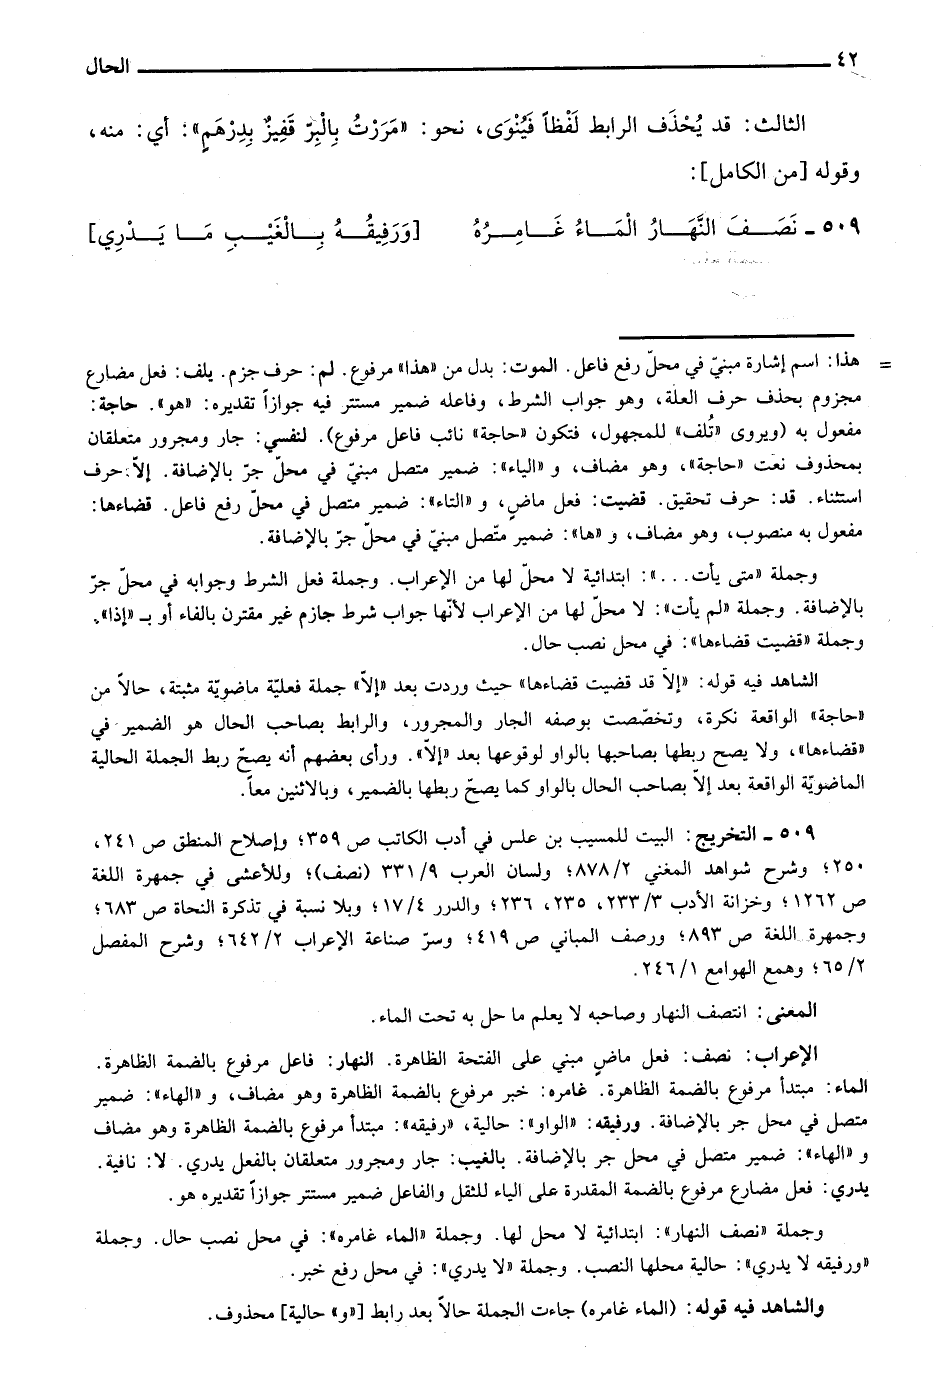 ٤٢ الحال
الثالث: قد يُحْذَف الرابط لَفْظاً فَيُنْوَى، نحو: «مَرَرْتُ بِالْبِرِّ قَفِيزٌ بِدِرْهَمٍ»: أي: منه،
وقوله [من الكامل]:
٥٠٩ ـ نَصَـفَ النَّهَـارُ الْمَـاءُ غَـامِـرُهُ [وَرَفِيقُـهُ بِـالْغَيْـبِ مَـا يَـدْرِي]
= هذا: اسم إشارة مبنيّ في محلّ رفع فاعل. الموت: بدل من «هذا» مرفوع. لم: حرف جزم. يلف: فعل مضارع
مجزوم بحذف حرف العلة، وهو جواب الشرط، وفاعله ضمير مستتر فيه جوازاً تقديره: «هو». حاجة:
مفعول به (ويروى «تُلف» للمجهول، فتكون «حاجة» نائب فاعل مرفوع). لنفسي: جار ومجرور متعلقان
بمحذوف نعت «حاجة»، وهو مضاف، و «الياء»: ضمير متصل مبنيّ في محلّ جرّ بالإضافة. إلاّ: حرف
استثناء. قد: حرف تحقيق. قضيت: فعل ماضٍ، و «التاء»: ضمير متصل في محلّ رفع فاعل. قضاءها:
مفعول به منصوب، وهو مضاف، و «ها»: ضمير متّصل مبنيّ في محلّ جرّ بالإضافة.
وجملة «متى يأت...»: ابتدائية لا محلّ لها من الإعراب. وجملة فعل الشرط وجوابه في محلّ جرّ
بالإضافة. وجملة «لم يأت»: لا محلّ لها من الإعراب لأنّها جواب شرط جازم غير مقترن بالفاء أو بـ «إذا».
وجملة «قضيت قضاءها»: في محل نصب حال.
الشاهد فيه قوله: «إلاّ قد قضيت قضاءها» حيث وردت بعد «إلاّ» جملة فعليّة ماضويّة مثبتة، حالاً من
«حاجة» الواقعة نكرة، وتخصّصت بوصفه الجار والمجرور، والرابط بصاحب الحال هو الضمير في
«قضاءها»، ولا يصح ربطها بصاحبها بالواو لوقوعها بعد «إلاّ». ورأى بعضهم أنه يصحّ ربط الجملة الحالية
الماضويّة الواقعة بعد إلاّ بصاحب الحال بالواو كما يصحّ ربطها بالضمير، وبالاثنين معاً.
٥٠٩ ـ التخريج: البيت للمسيب بن علس في أدب الكاتب ص ٣٥٩؛ وإصلاح المنطق ص ٢٤١،
٢٥٠؛ وشرح شواهد المغني ٢/ ٨٧٨؛ ولسان العرب ٩/ ٣٣١ (نصف)؛ وللأعشى في جمهرة اللغة
ص ١٢٦٢؛ وخزانة الأدب ٣/ ٢٣٣، ٢٣٥، ٢٣٦؛ والدرر ٤/ ١٧؛ وبلا نسبة في تذكرة النحاة ص ٦٨٣؛
وجمهرة اللغة ص ٨٩٣؛ ورصف المباني ص ٤١٩؛ وسرّ صناعة الإعراب ٢/ ٦٤٢؛ وشرح المفصل
٢/ ٦٥؛ وهمع الهوامع ١/ ٢٤٦.
المعنى: انتصف النهار وصاحبه لا يعلم ما حل به تحت الماء.
الإعراب: نصف: فعل ماضٍ مبني على الفتحة الظاهرة. النهار: فاعل مرفوع بالضمة الظاهرة.
الماء: مبتدأ مرفوع بالضمة الظاهرة. غامره: خبر مرفوع بالضمة الظاهرة وهو مضاف، و «الهاء»: ضمير
متصل في محل جر بالإضافة. ورفيقه: «الواو»: حالية، «رفيقه»: مبتدأ مرفوع بالضمة الظاهرة وهو مضاف
و «الهاء»: ضمير متصل في محل جر بالإضافة. بالغيب: جار ومجرور متعلقان بالفعل يدري. لا: نافية.
يدري: فعل مضارع مرفوع بالضمة المقدرة على الياء للثقل والفاعل ضمير مستتر جوازاً تقديره هو.
وجملة «نصف النهار»: ابتدائية لا محل لها. وجملة «الماء غامره»: في محل نصب حال. وجملة
«ورفيقه لا يدري»: حالية محلها النصب. وجملة «لا يدري»: في محل رفع خبر.
والشاهد فيه قوله: (الماء غامره) جاءت الجملة حالاً بعد رابط [«و» حالية] محذوف.